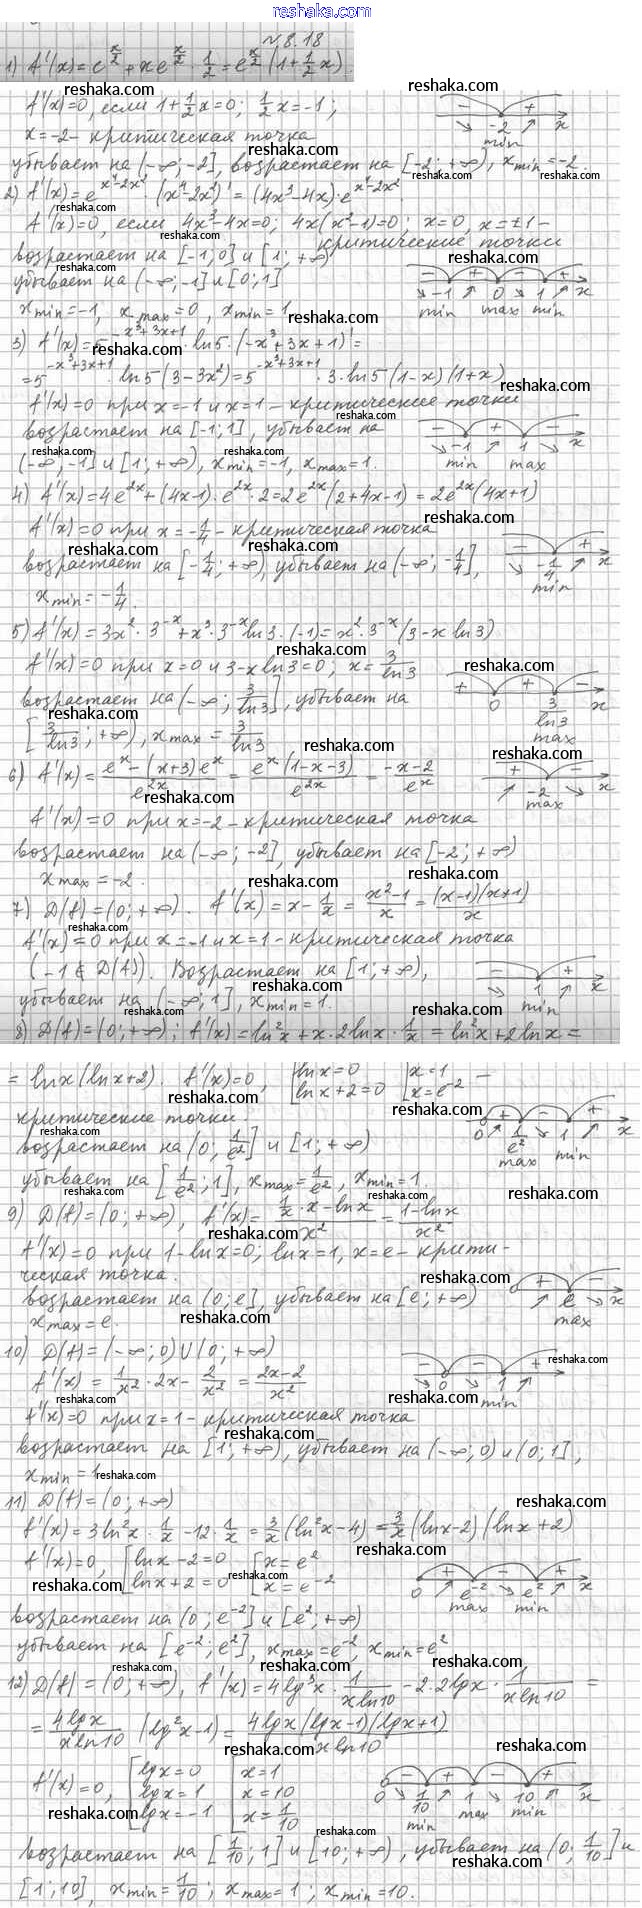 reshaka.com
№ 8.18
1) f'(x)=e^{x/2}+xe^{x/2}·1/2=e^{x/2}(1+1/2x)
f'(x)=0, если 1+1/2x=0; 1/2x=-1;
x=-2- критическая точка
убывает на (-∞;-2], возрастает на [-2;+∞), x min=-2.
2) f'(x)=e^{x⁴-2x²}·(x⁴-2x²)'=(4x³-4x)·e^{x⁴-2x²}
f'(x)=0, если 4x³-4x=0; 4x(x²-1)=0; x=0, x=±1-
критические точки
возрастает на [-1;0] и [1;+∞)
убывает на (-∞;-1] и [0;1]
x min=-1, x max=0, x min=1
3) f'(x)=5^{-x³+3x+1}·ln5·(-x³+3x+1)'=
=5^{-x³+3x+1}·ln5(3-3x²)=5^{-x³+3x+1}·3·ln5(1-x)(1+x)
f'(x)=0 при x=-1 и x=1- критические точки
возрастает на [-1;1], убывает на
(-∞;-1] и [1;+∞), x min=-1, x max=1.
4) f'(x)=4e^{2x}+(4x-1)·e^{2x}·2=2e^{2x}(2+4x-1)=2e^{2x}(4x+1)
f'(x)=0 при x=-1/4- критическая точка
возрастает на [-1/4;+∞), убывает на (-∞;-1/4],
x min=-1/4.
5) f'(x)=3x²·3^{-x}+x³·3^{-x}ln3·(-1)=x²·3^{-x}(3-x ln3)
f'(x)=0 при x=0 и 3-x ln3=0; x=3/ln3
возрастает на (-∞;3/ln3], убывает на
[3/ln3;+∞), x max=3/ln3
6) f'(x)=(e^x-(x+3)e^x)/e^{2x}=e^x(1-x-3)/e^{2x}=(-x-2)/e^x
f'(x)=0 при x=-2- критическая точка
возрастает на (-∞;-2], убывает на [-2;+∞)
x max=-2.
7) D(f)=(0;+∞). f'(x)=x-1/x=(x²-1)/x=(x-1)(x+1)/x
f'(x)=0 при x=-1 и x=1- критическая точка
(-1∉D(f)). Возрастает на [1;+∞),
убывает на (-∞;1], x min=1.
8) D(f)=(0;+∞); f'(x)=ln²x+x·2lnx·1/x=ln²x+2lnx=
=lnx(lnx+2). f'(x)=0, [lnx=0 [x=1 -
lnx+2=0 x=e^{-2}
критические точки.
возрастает на (0;1/e²] и [1;+∞)
убывает на [1/e²;1], x max=1/e², x min=1.
9) D(f)=(0;+∞), f'(x)=(1/x·x-lnx)/x²=(1-lnx)/x²
f'(x)=0 при 1-lnx=0; lnx=1, x=e- крити-
ческая точка.
возрастает на (0;e], убывает на [e;+∞)
x max=e.
10) D(f)=(-∞;0)∪(0;+∞)
f'(x)=1/x²·2x-2/x²=(2x-2)/x²
f'(x)=0 при x=1- критическая точка
возрастает на [1;+∞), убывает на (-∞;0) и (0;1],
x min=1
11) D(f)=(0;+∞)
f'(x)=3ln²x·1/x-12·1/x=3/x(ln²x-4)=3/x(lnx-2)(lnx+2)
f'(x)=0, [lnx-2=0 [x=e²
lnx+2=0 x=e^{-2}
возрастает на (0;e^{-2}] и [e²;+∞)
убывает на [e^{-2};e²], x max=e^{-2}, x min=e²
12) D(f)=(0;+∞), f'(x)=4lg³x·1/(x ln10)-2·2lgx·1/(x ln10)=
=4lgx/(x ln10)(lg²x-1)=4lgx(lgx-1)(lgx+1)/(x ln10)
f'(x)=0, [lgx=0 [x=1
lgx=1 x=10
lgx=-1 x=1/10
возрастает на [1/10;1] и [10;+∞), убывает на (0;1/10] и
[1;10], x min=1/10; x max=1; x min=10.